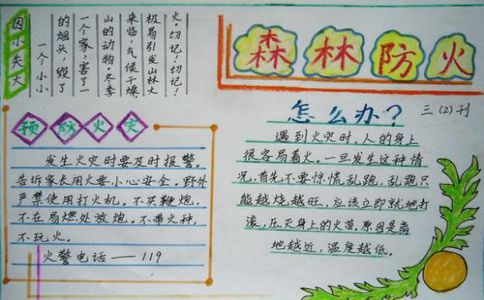 森林防火
三(2)刊
因小失大
一个小小
的烟头,毁了
一个家,害了一
山的动物。冬季
来临,气候干燥,
极易引发山林大
火。切记!切记!
预防火灾
发生火灾时要及时报警。
告诉家长用火要小心安全。野外
严禁使用打火机。不买鞭炮,
不在易燃处放炮。不带火种,
不玩火。
火警电话——119
怎么办?
遇到火灾时,人的身上
很容易着火。一旦发生这种情
况,首先不要惊慌乱跑,乱跑只
能越烧越旺,应该立即就地打
滚,压灭身上的火苗,原因是离
地越近,温度越低。